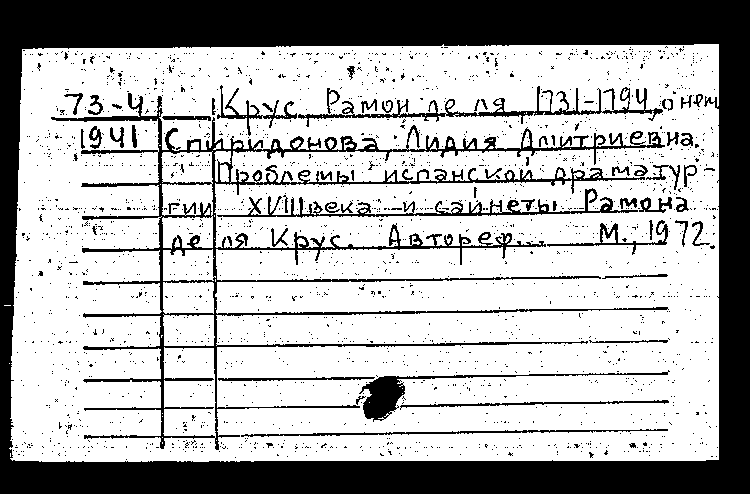 73-4 Крус, Рамон де ля, 1731-1794, о нем
1941 Спиридонова, Лидия Дмитриевна.
Проблемы испанской драматур-
гии XVIII века и сайнеты Рамона
де ля Крус. Автореф... М., 1972.